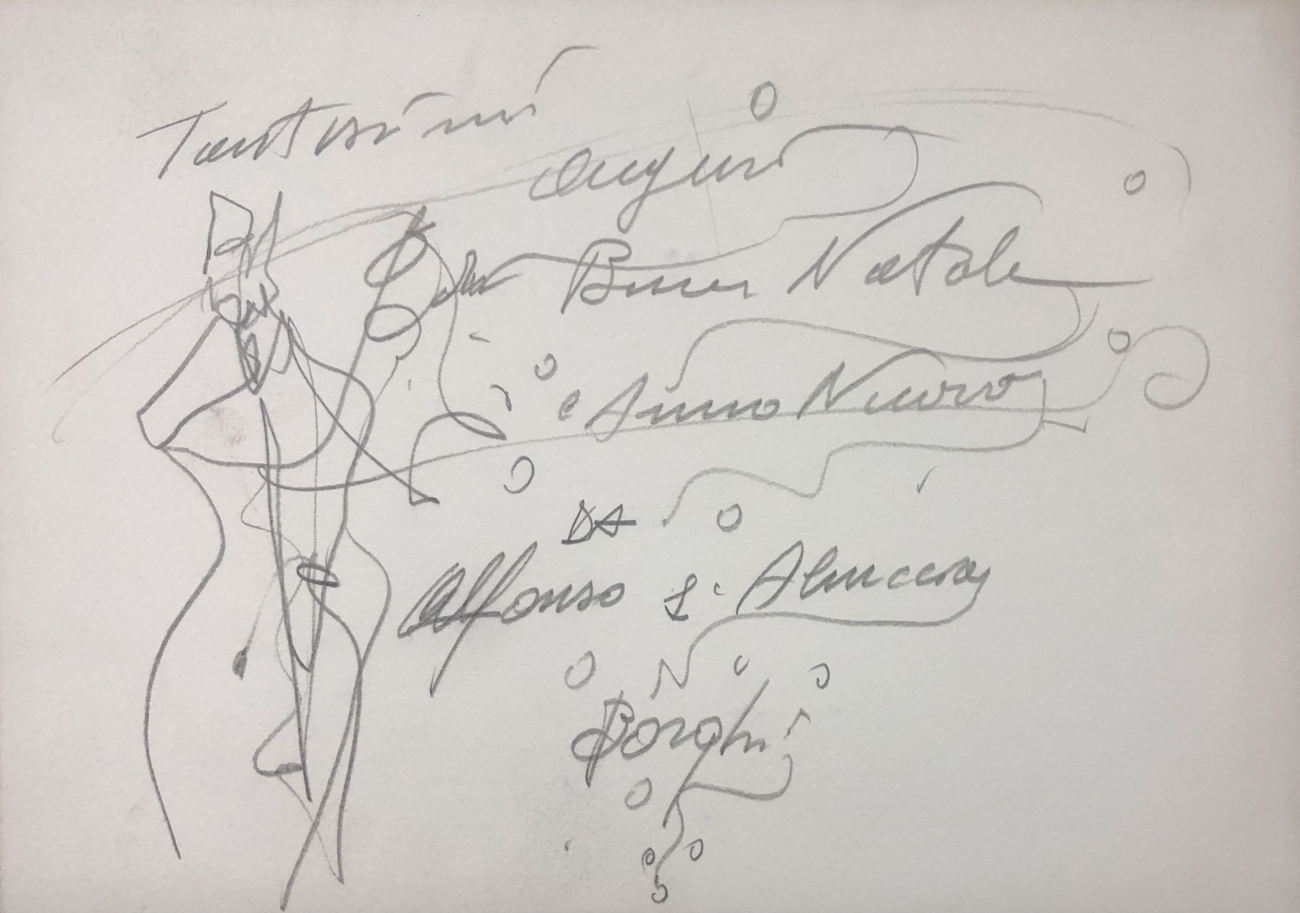 Tantissimi
auguri
Buon Natale
e Anno Nuovo
DA
Alfonso e
Borghi